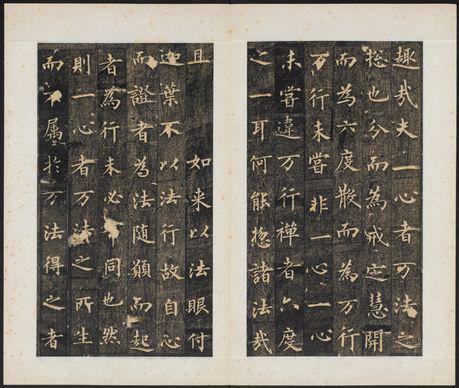 趣哉夫一心者万法之
揔也分而為戒定慧開
而為六度散而為万行
万行未嘗非一心一心
未嘗違万行禪者六度
之一耳何能揔諸法哉
且如来以法眼付
迦葉不以法行故自心
而證者為法隨願而起
者為行未必同也然
則一心者万法之所生
而不属於万法得之者